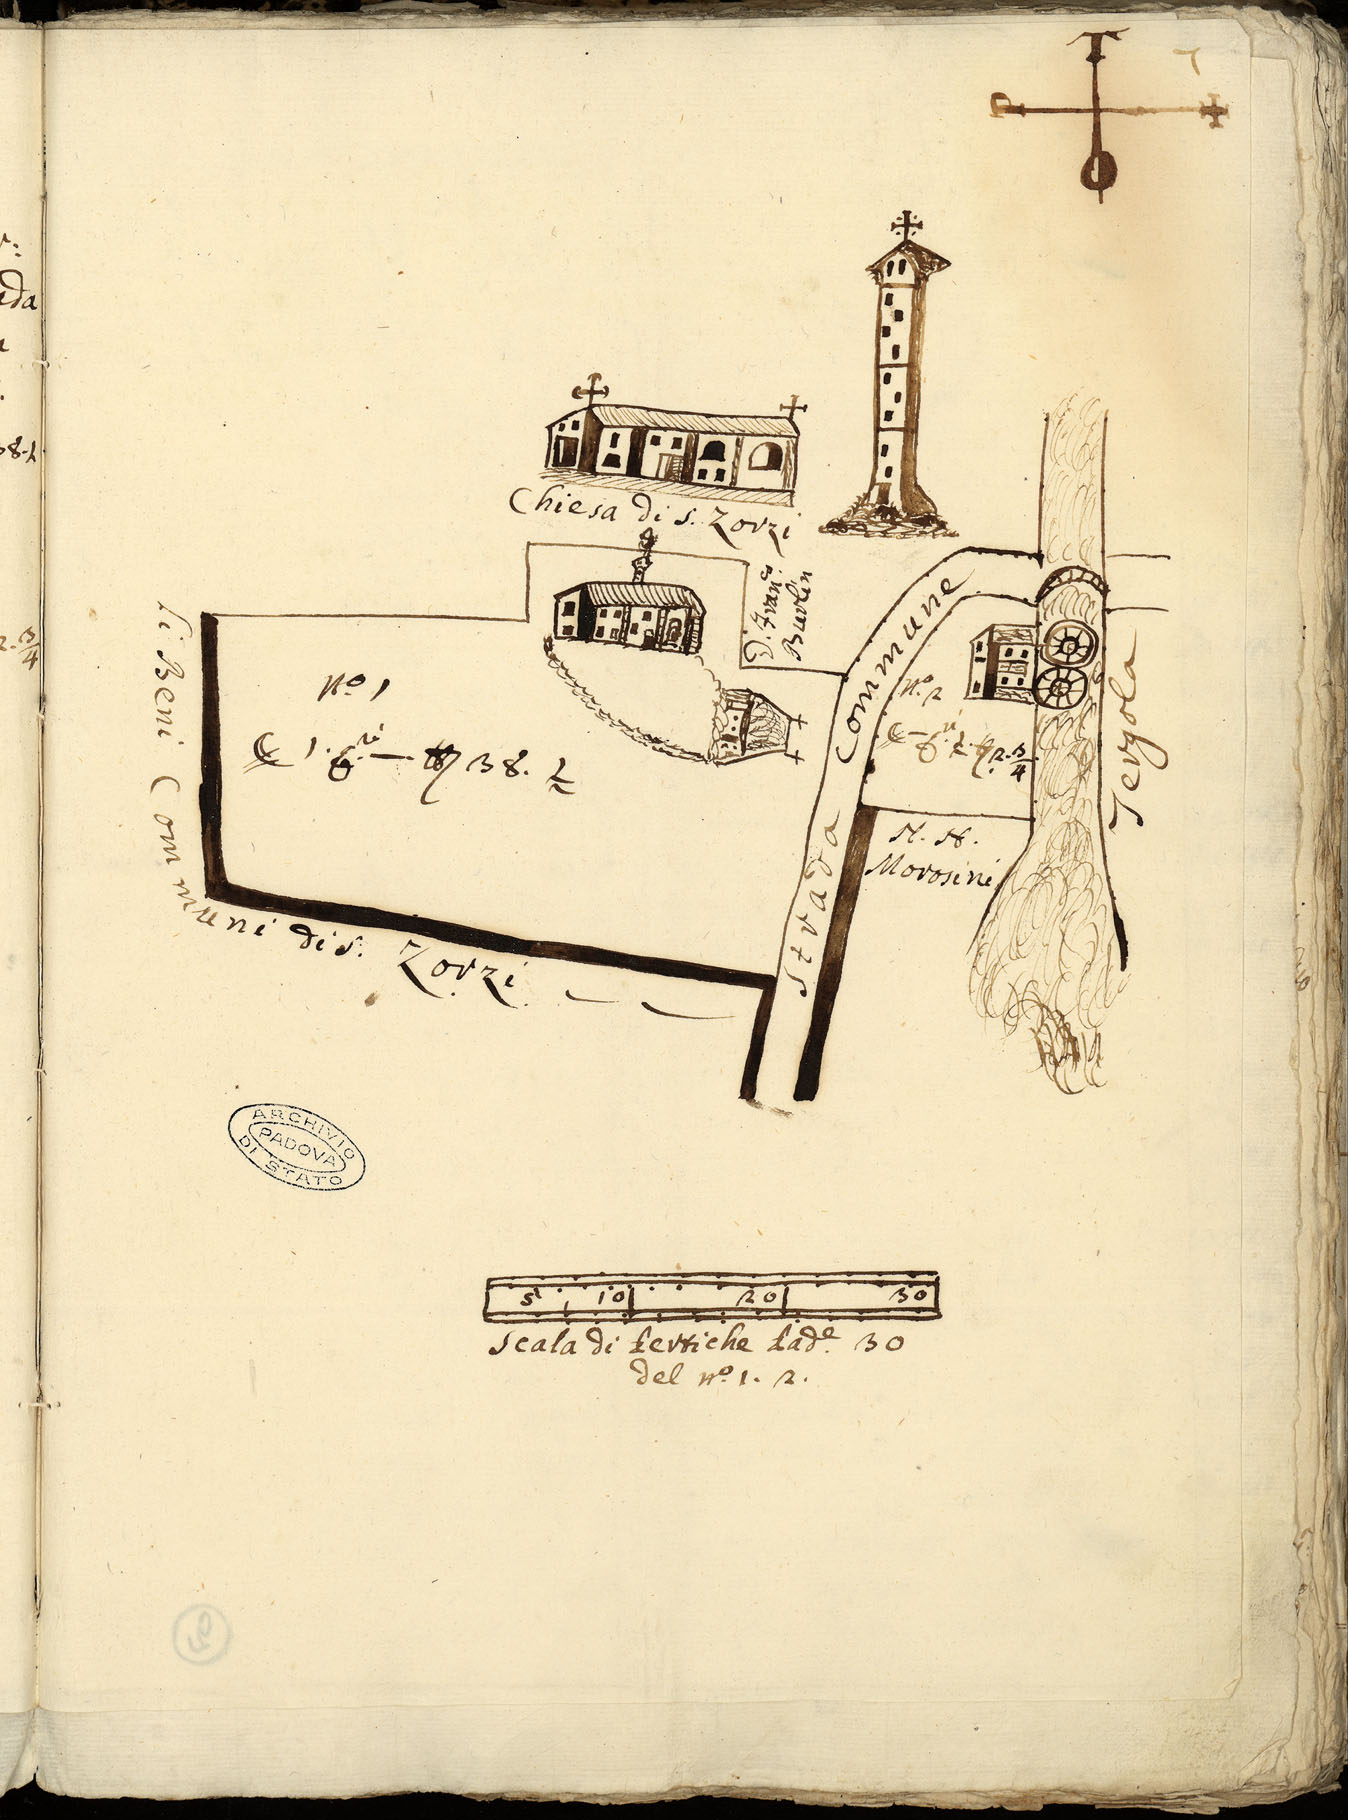 T
P
O
Chiesa di S. Zorzi
D. Fran.
Burlin
Li Beni Communi di S. Zorzi
No. 1
C 1. q.ri — 38. 1/2
Strada Commune
No. 2
2. 3/4
N. H.
Morosini
Tergola
ARCHIVIO
PADOVA
DI STATO
5 10 20 30
Scala di Pertiche Pad.e 30
del No. 1. 2.
ada
38. 1/2
2. 3/4